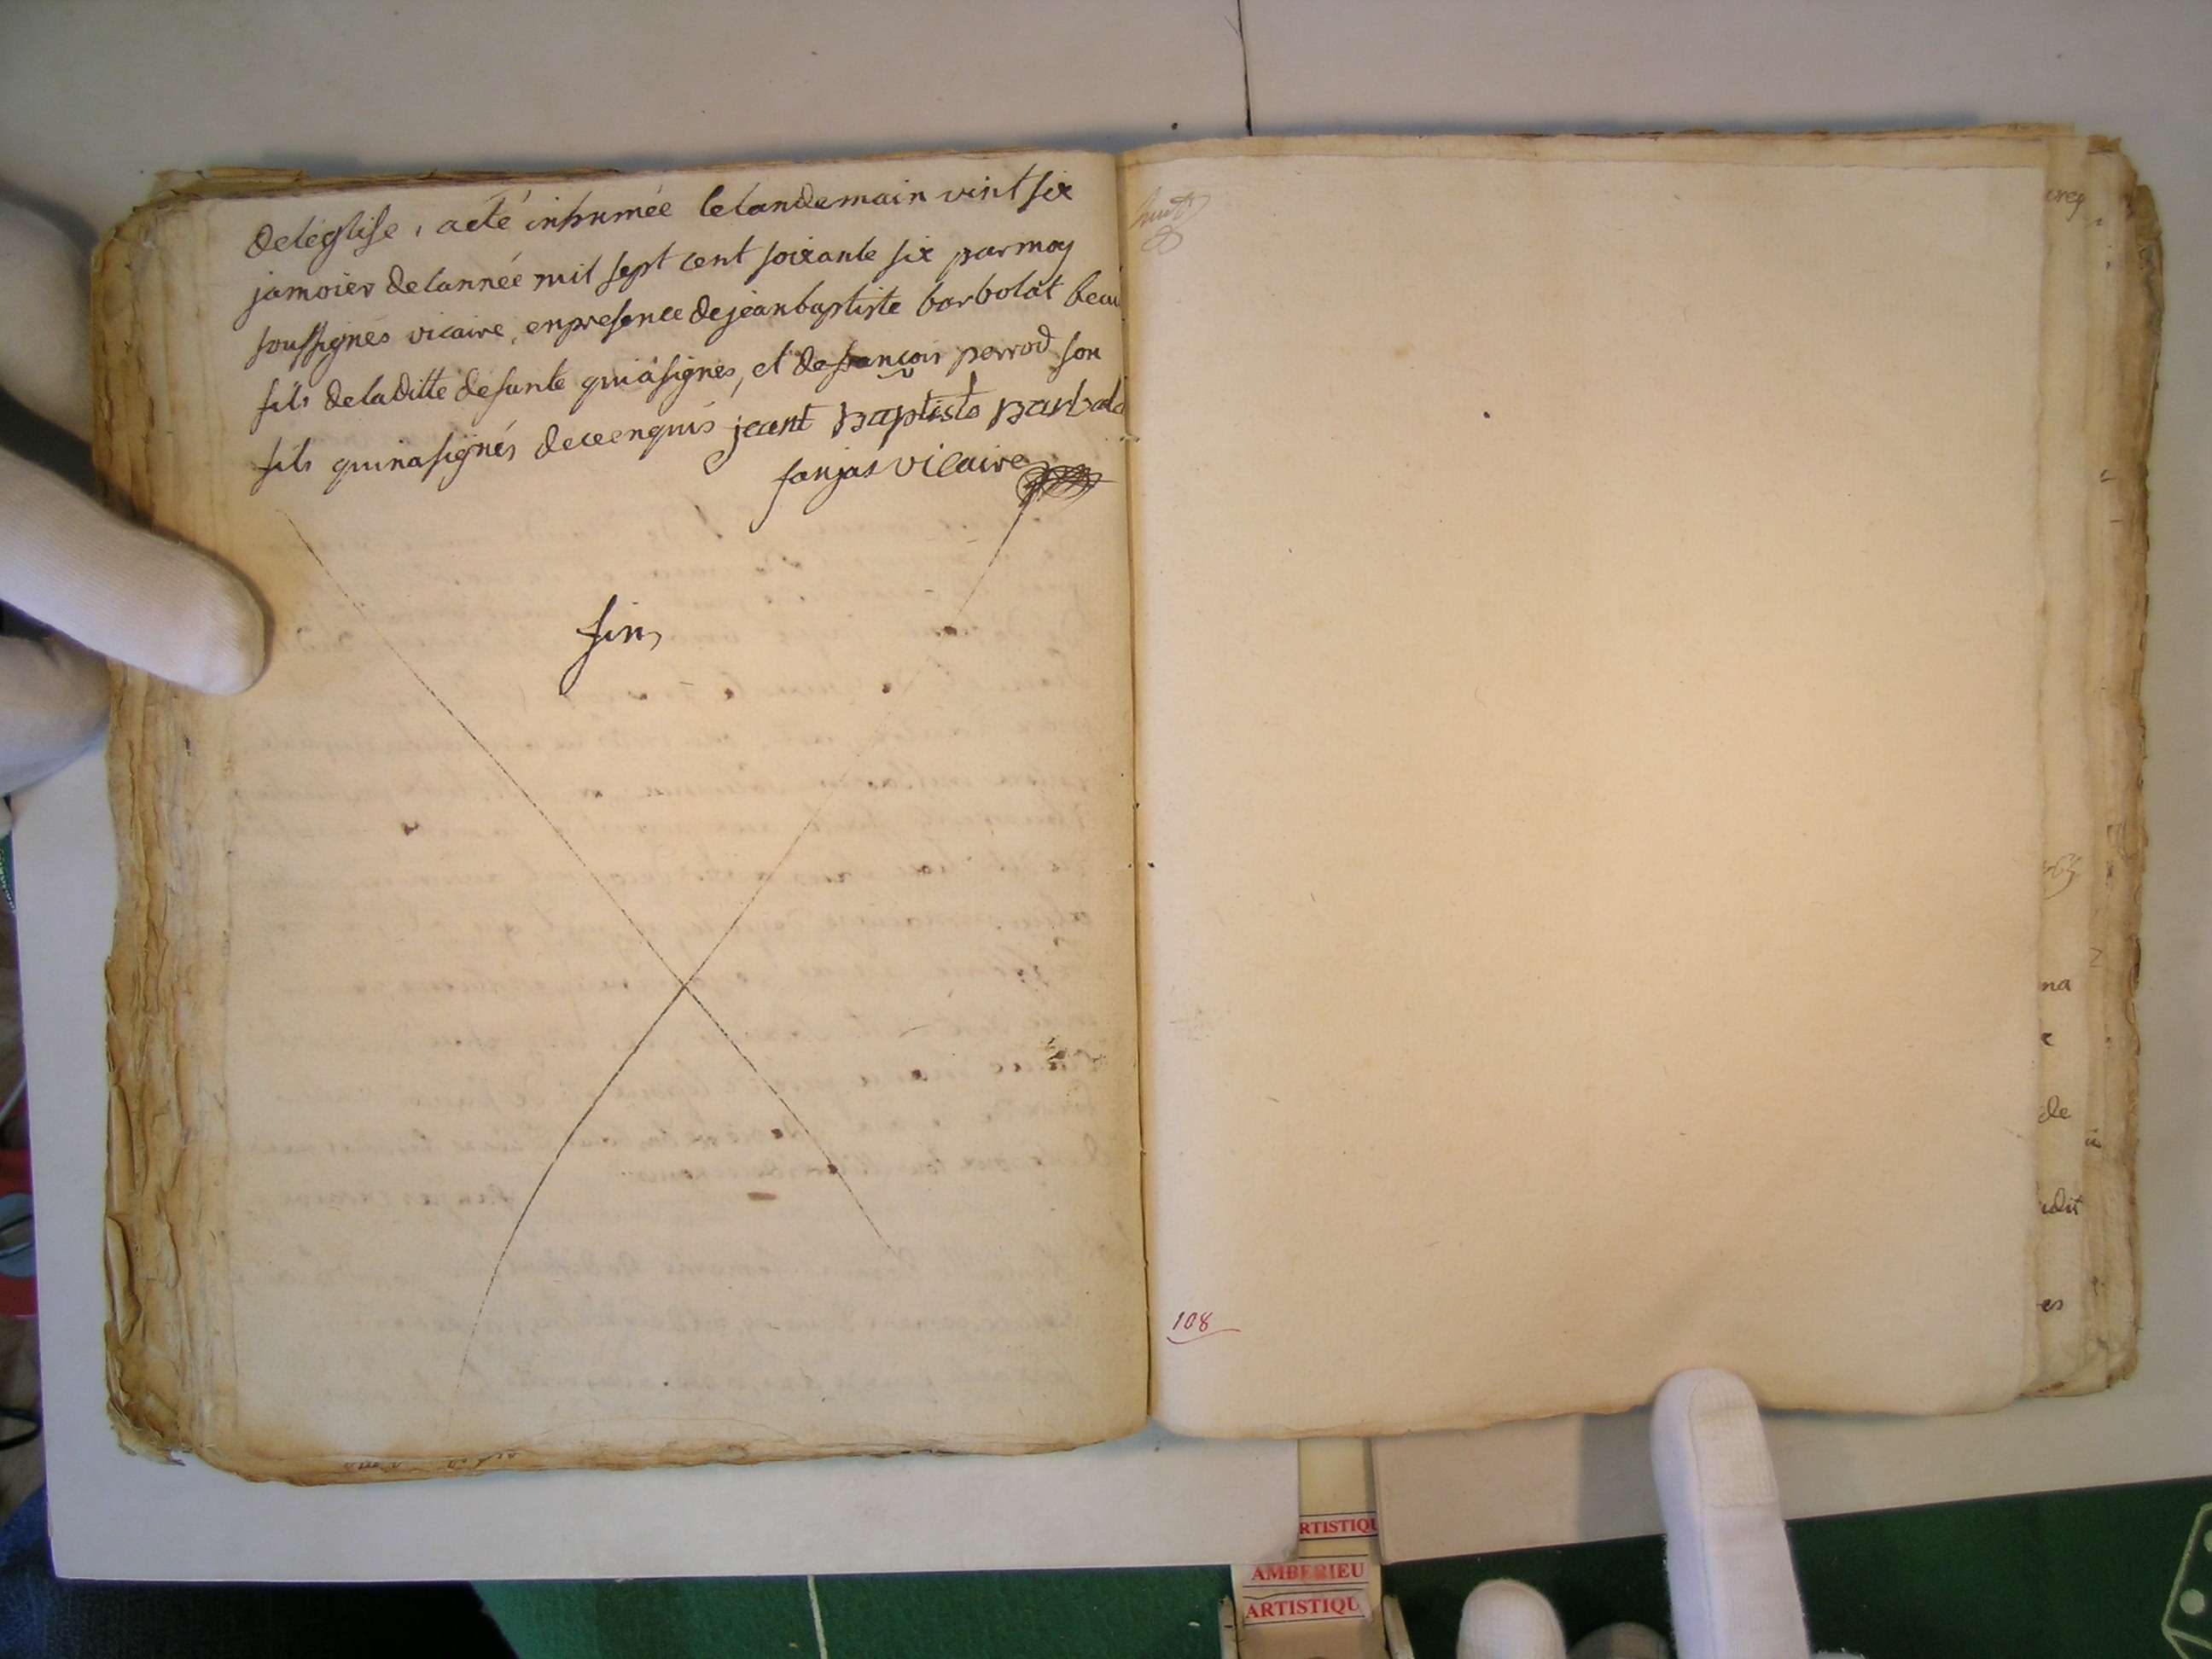 deléglise, aété inhumée lelandemain vint six
janvier delannée mil sept cent soixante six parmoy
soussignés vicaire, enpresence dejeanbaptiste barbolat beau
fils deladitte defunte quiàsignés, et defrançois perrod son
fils quinasignés deceenquis jeant Baptiste barbola
faujas vicaire
fin,
108
na
de
udit
es
RTISTIQU
AMBERIEU
ARTISTIQU